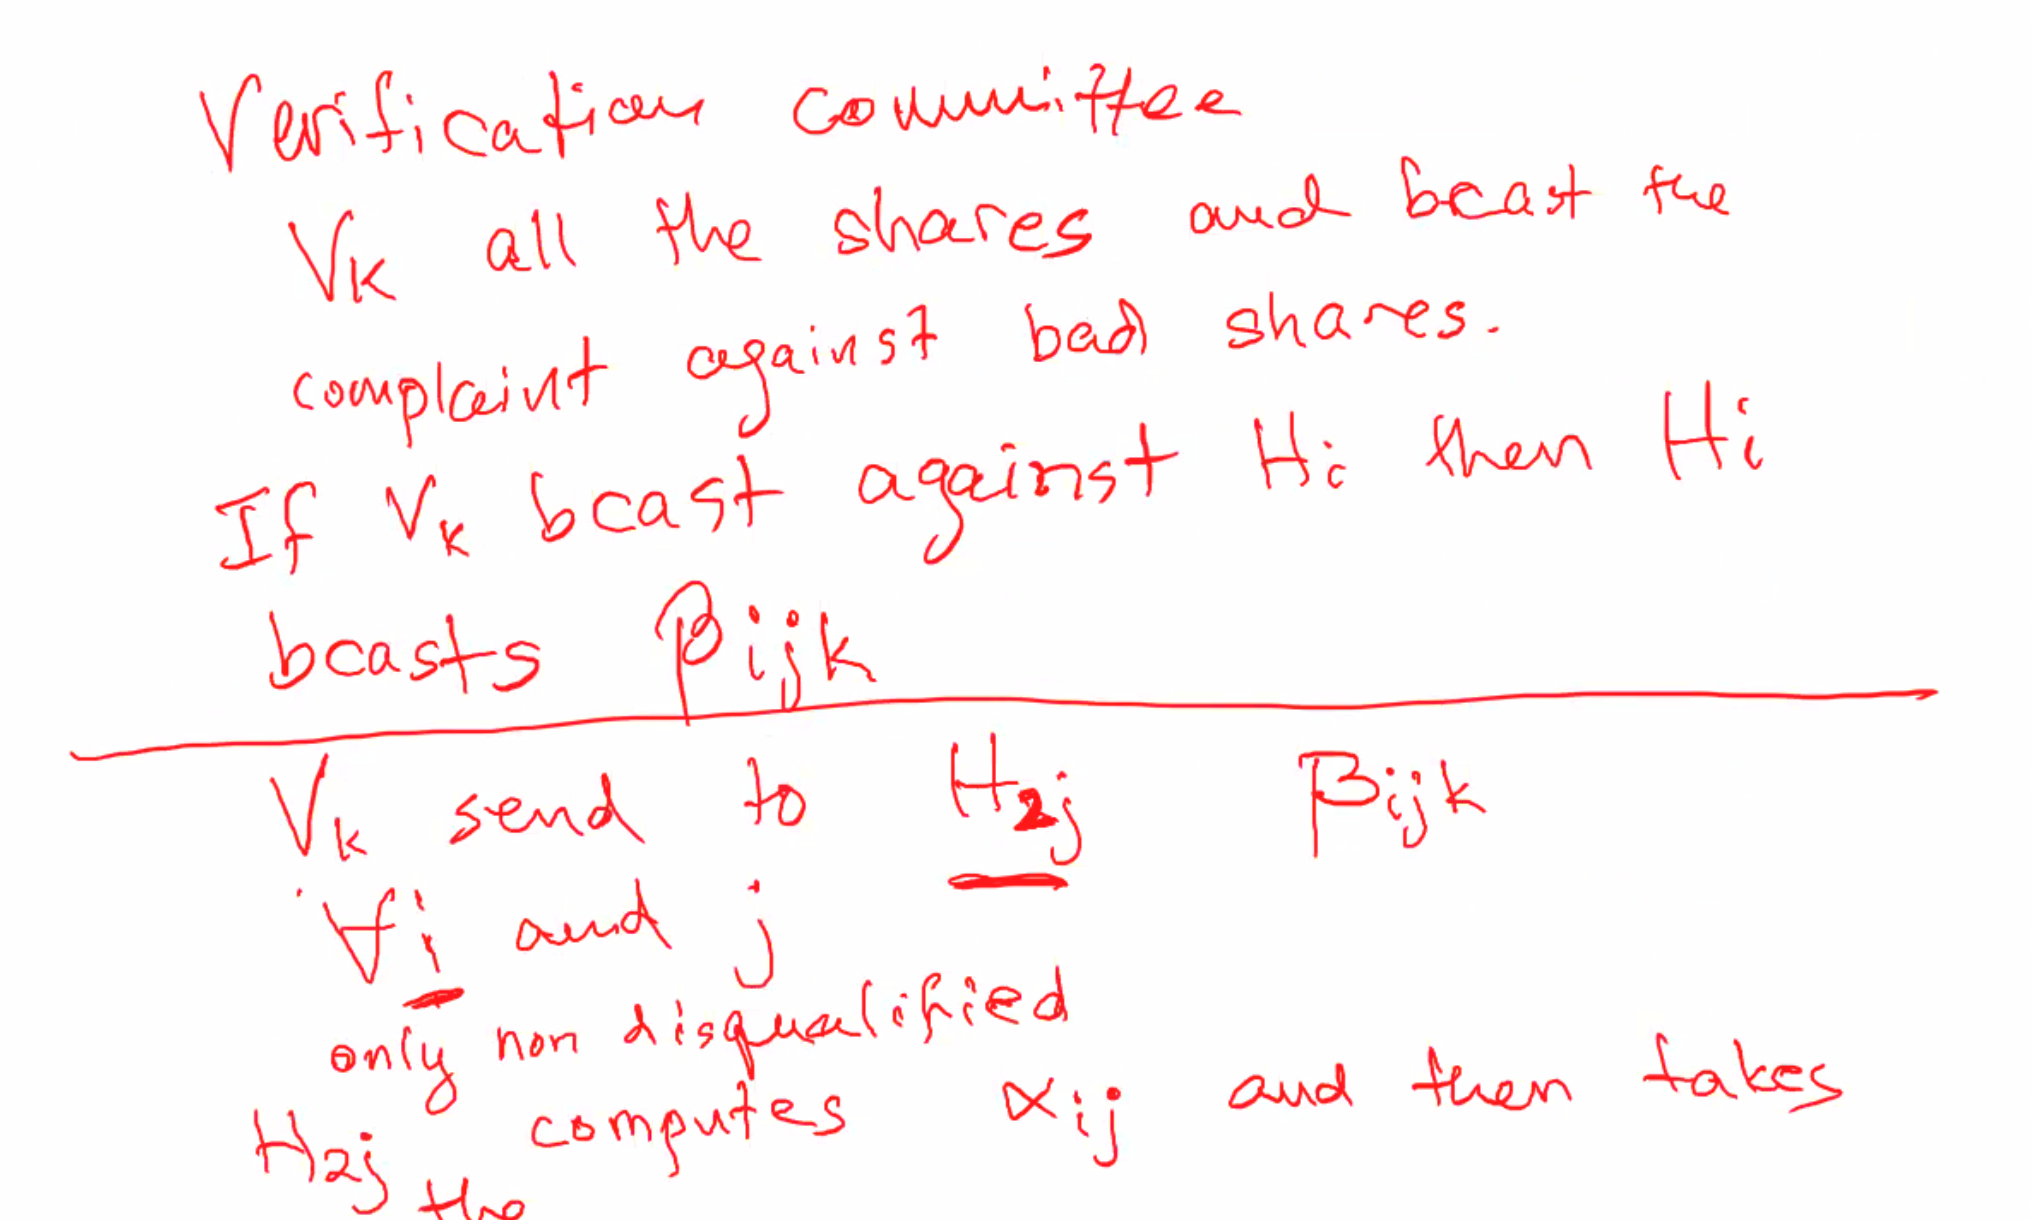 Verification committee
Vk all the shares and bcast the
complaint against bad shares.
If Vk bcast against Hi then Hi
bcasts βijk
Vk send to H2j βijk
∀i and j
only non disqualified
H2j computes αij and then takes
the